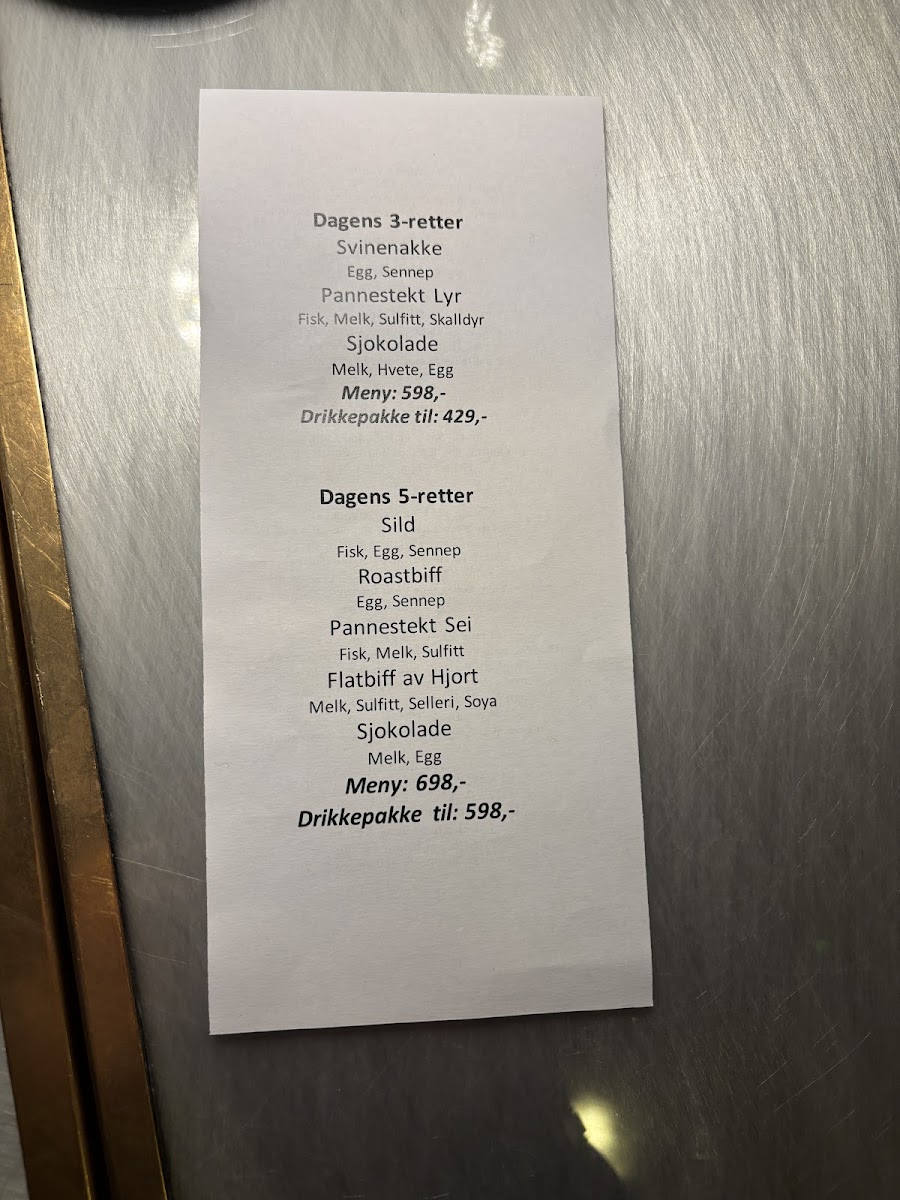 Dagens 3-retter
Svinenakke
Egg, Sennep
Pannestekt Lyr
Fisk, Melk, Sulfitt, Skalldyr
Sjokolade
Melk, Hvete, Egg
Meny: 598,-
Drikkepakke til: 429,-
Dagens 5-retter
Sild
Fisk, Egg, Sennep
Roastbiff
Egg, Sennep
Pannestekt Sei
Fisk, Melk, Sulfitt
Flatbiff av Hjort
Melk, Sulfitt, Selleri, Soya
Sjokolade
Melk, Egg
Meny: 698,-
Drikkepakke til: 598,-